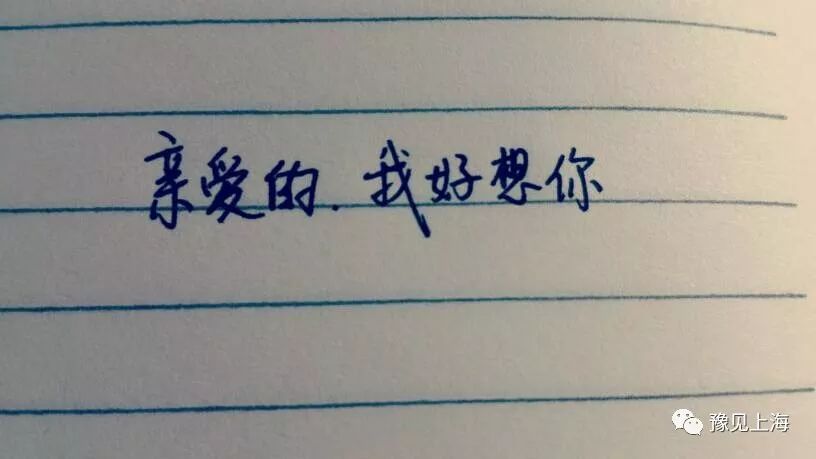 亲爱的.我好想你
豫见上海